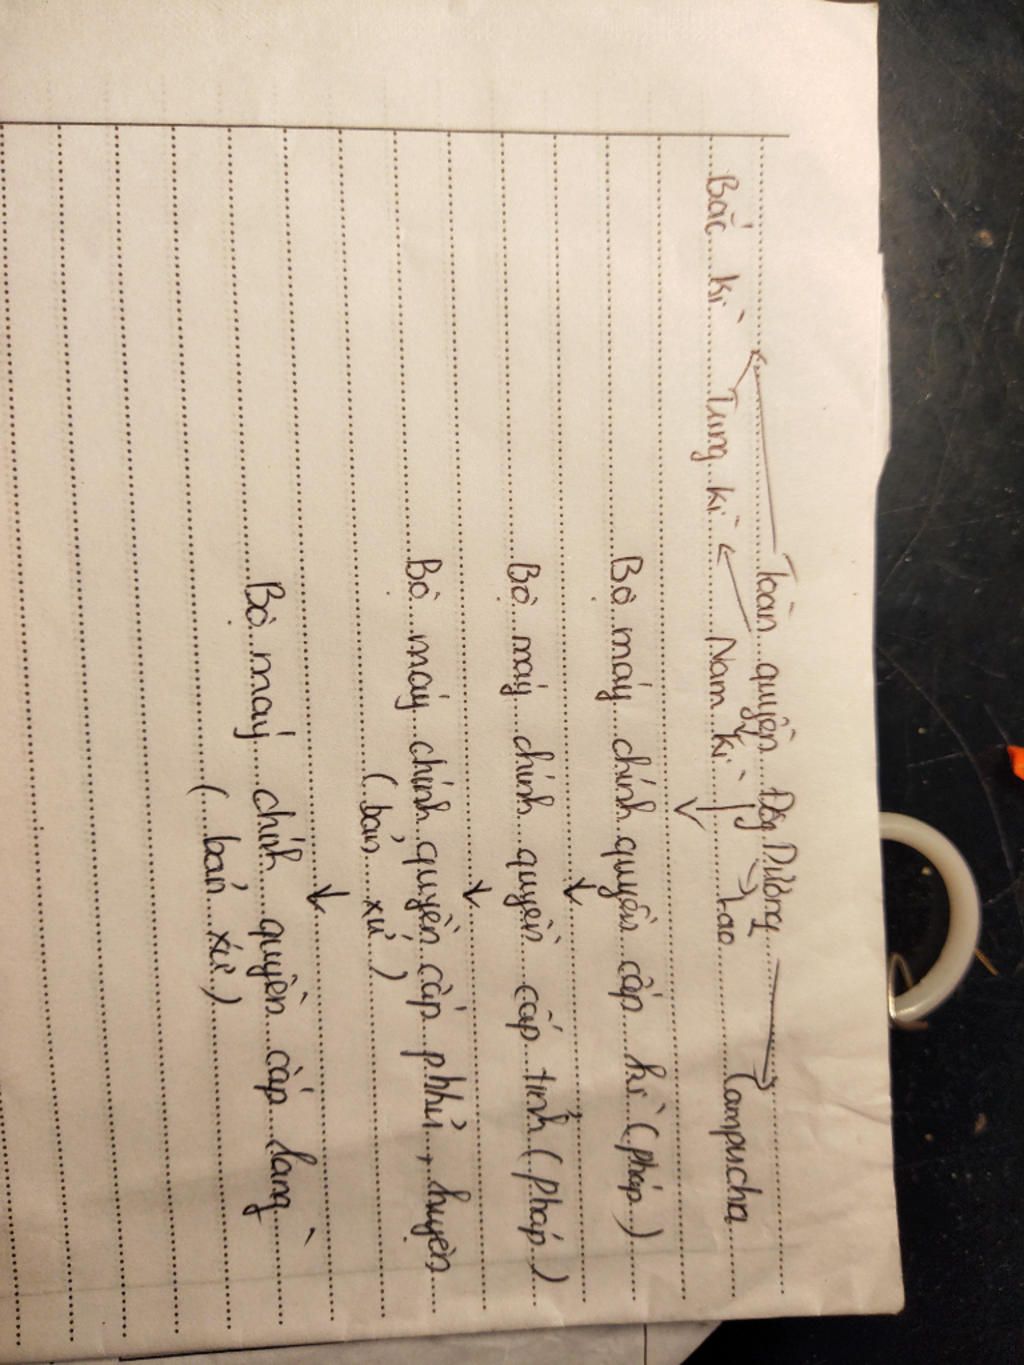 Toàn quyền Đông Dương
Bắc kì Trung kì Nam kì Lào Campuchia
Bộ máy chính quyền cấp kì (pháp)
Bộ máy chính quyền cấp tỉnh (pháp)
Bộ máy chính quyền cấp phhủ, huyện
(bản xứ)
Bộ máy chính quyền cấp làng
(bản xứ)